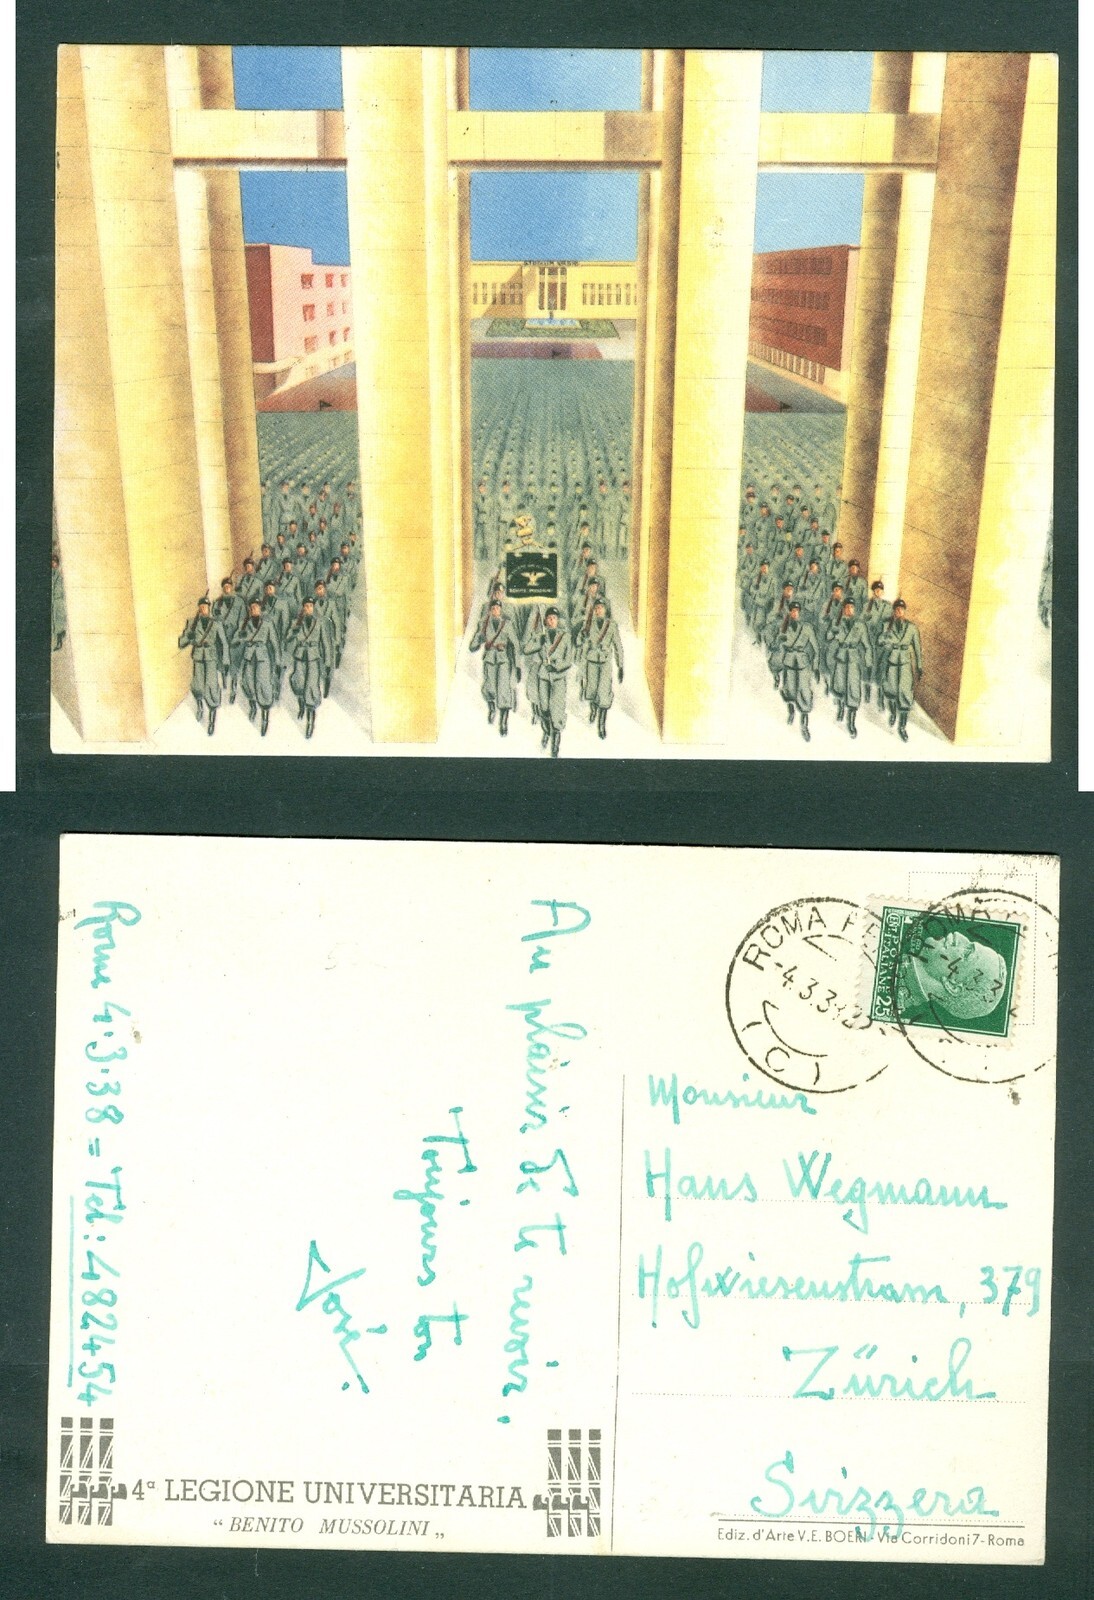 STUDIUM URBIS
BENITO MUSSOLINI
Au plaisir de te revoir.
Toujours ton
Rome 4.3.38 = Tel: 482454
4ª LEGIONE UNIVERSITARIA
"BENITO MUSSOLINI"
ROMA
-4.3.3
(C)
POSTE
ITALIANE
25
ROMA
-4.3.3
Monsieur
Hans Wegmann
Hofwiesenstrasse, 379
Zürich
Svizzera
Ediz. d'Arte V.E. BOERI - Via Corridoni 7 - Roma